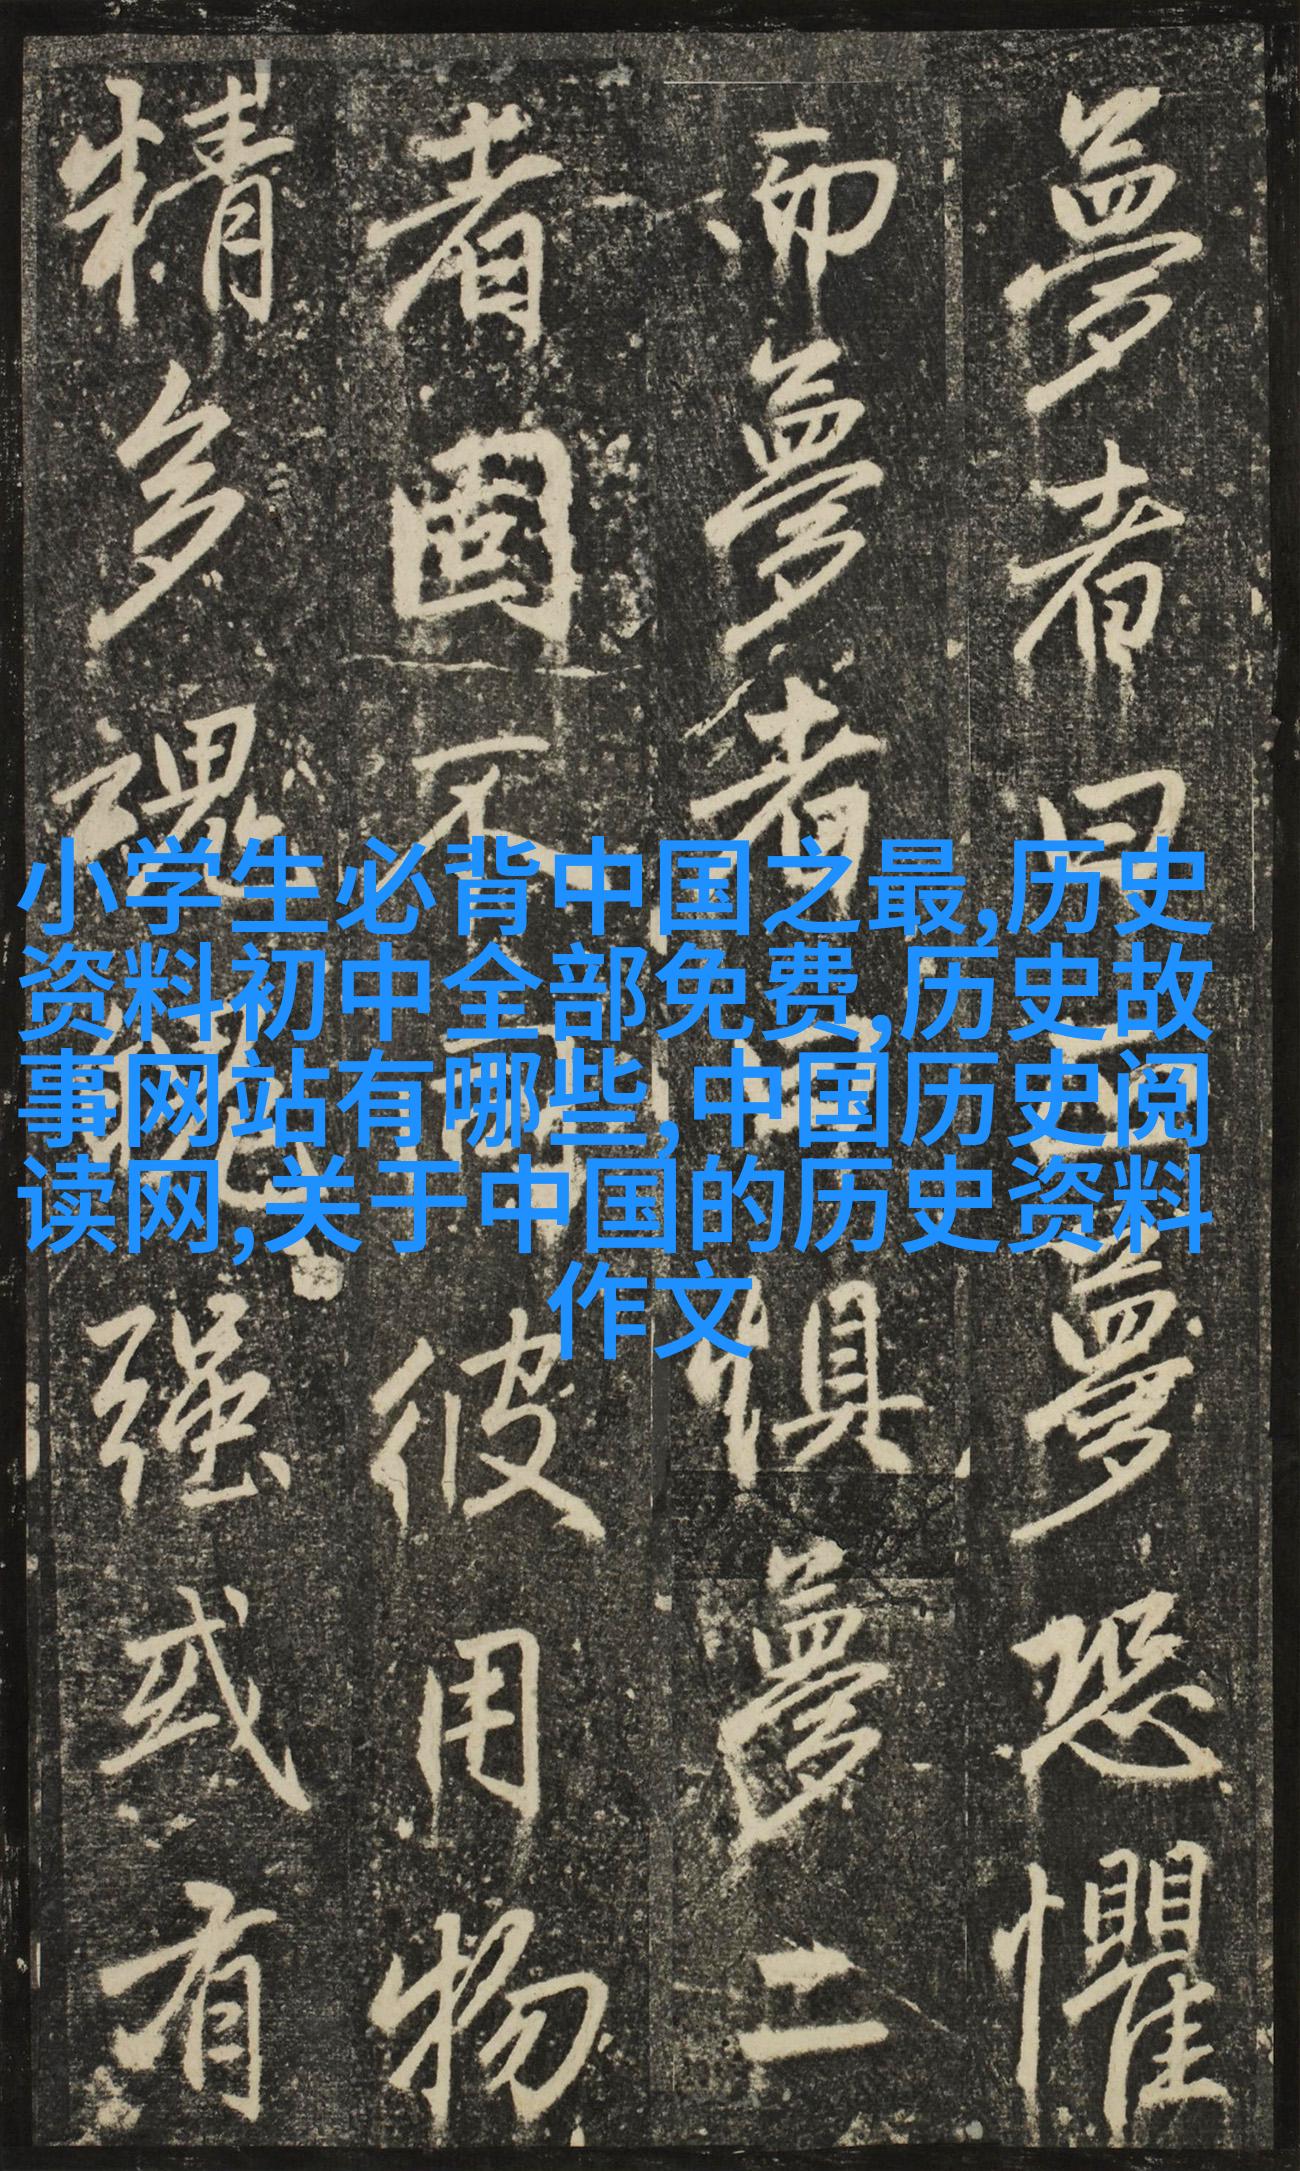 夢者曰正夢恐懼
而夢者曰懼夢二
者固不可彼用物
精多魂魄强或有
小学生必背中国之最,历史
资料初中全部免费,历史故
事网站有哪些,中国历史阅
读网,关于中国的历史资料
作文